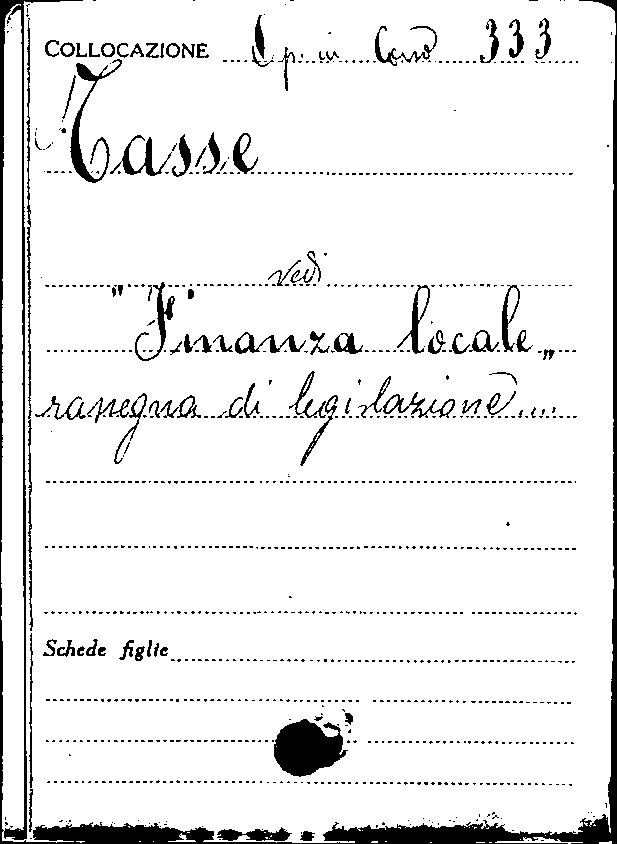 COLLOCAZIONE Op. in Corso 333
Tasse
vedi
"Finanza locale„
rassegna di legislazione....
Schede figlie